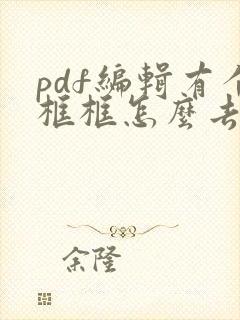 pdf編輯有个
框框怎麼去
余隆